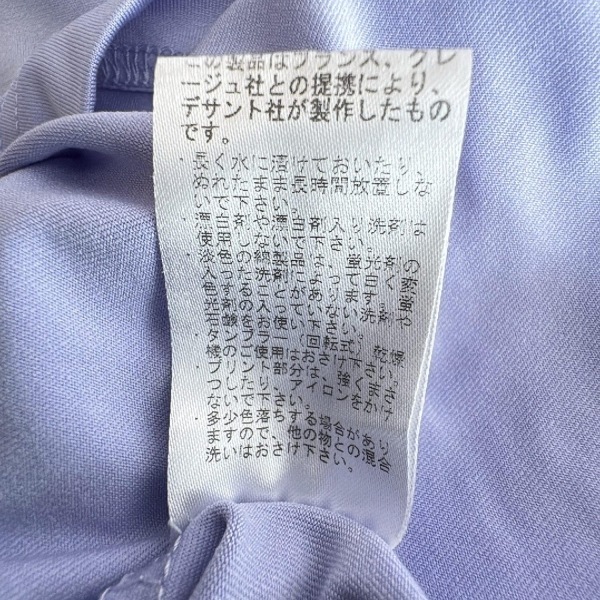 この製品はフランス、グレ
ージュ社との提携により、
デサント社が製作したもの
です。
・長く水に溶けておいたり、
ぬれたまま長時間放置しな
いで下さい。
・漂白剤や漂白剤入り洗剤は
使用しないで下さい。
・淡色の綿製品は、蛍光剤の
入った洗剤によって白く変
色したりすることがあります。蛍
光剤の入っていない洗剤や
石鹸をお使い下さい。
・タンブラー（回転式）乾燥
機のご使用はおさけ下さい。
・プリント部分は、強くまさ
つしたり、アイロンをかけ
ないで下さい。
・多少色落ちする場合があり
ますので、他の物との混合
洗いはおさけ下さい。